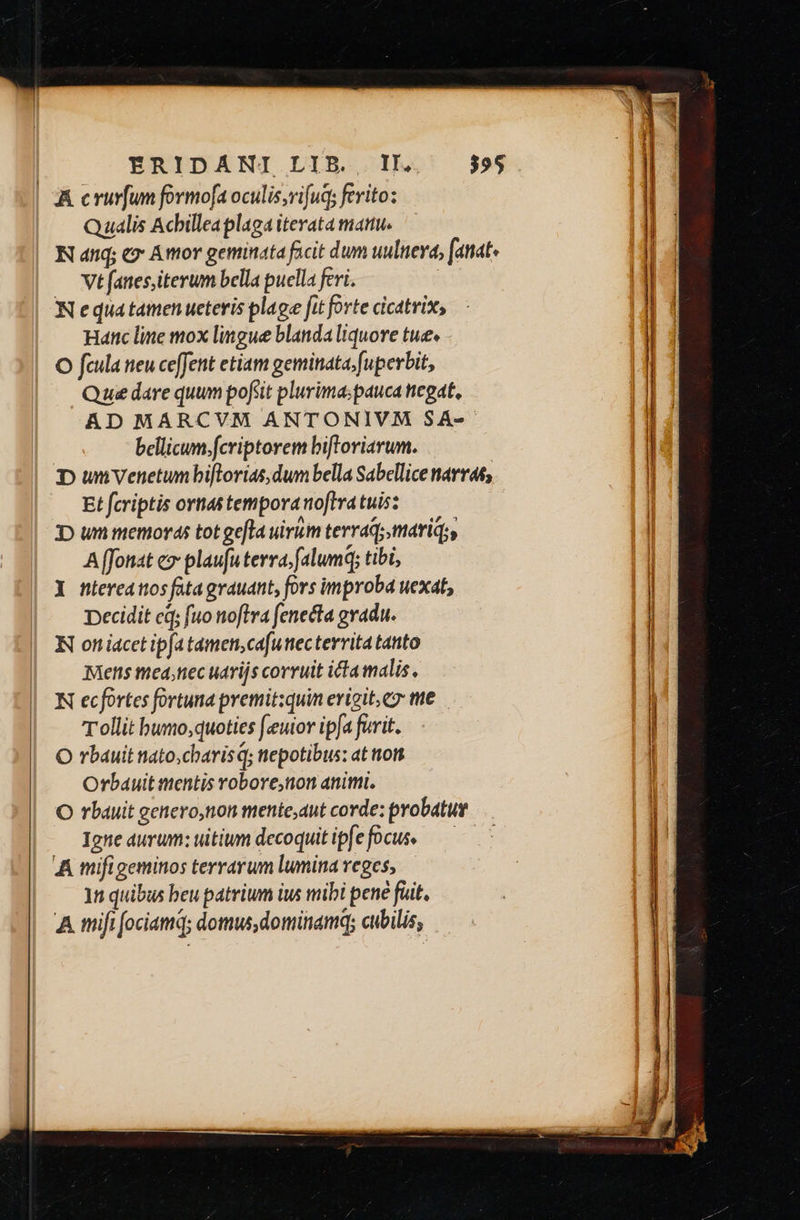 ERIDANI LIB. II. 395
A c rurſum formoſa oculis, riſuq; ferito:
Qualis Achillea plaga iterata manu.
N anq; & Amor geminata facit dum uulnera, ſanat.
Vt ſanes, iterum bella puella feri.
N e qua tamen ueteris plage ſit forte cicatrix,
Hanc line mox lingue blanda liquore tue.
O ſcula neu ceſſent etiam geminata, ſuperbit,
Que dare quum poſsit plurima, pauca negat.
AD MARCVM ANTONIVM SA-
bellicum, ſcriptorem hiſtoriarum.
D um Venetum hiſtorias, dum bella Sabellice narras,
Et ſcriptis ornas tempora noſtra tuis:
D um memoras tot geſta uirûm terraq;, mariq;,
A ſſonat & plauſu terra, ſalumq; tibi,
I nterea nos fata grauant, fors improba uexat,
Decidit eq; ſuo noſtra ſenecta gradu.
N on iacet ipſa tamen, caſu nec territa tanto
Mens mea, nec uarijs corruit icta malis.
N ec fortes fortuna premit: quin erigit, & me
Tollit humo, quoties ſæuior ipſa furit.
O rbauit nato, charisq; nepotibus: at non
Orbauit mentis robore, non animi.
O rbauit genero, non mente, aut corde: probatur
Igne aurum: uitium decoquit ipſe focus.
A miſi geminos terrarum lumina reges,
In quibus heu patrium ius mihi penè fuit.
A miſi ſociamq; domus, dominamq; cubilis,